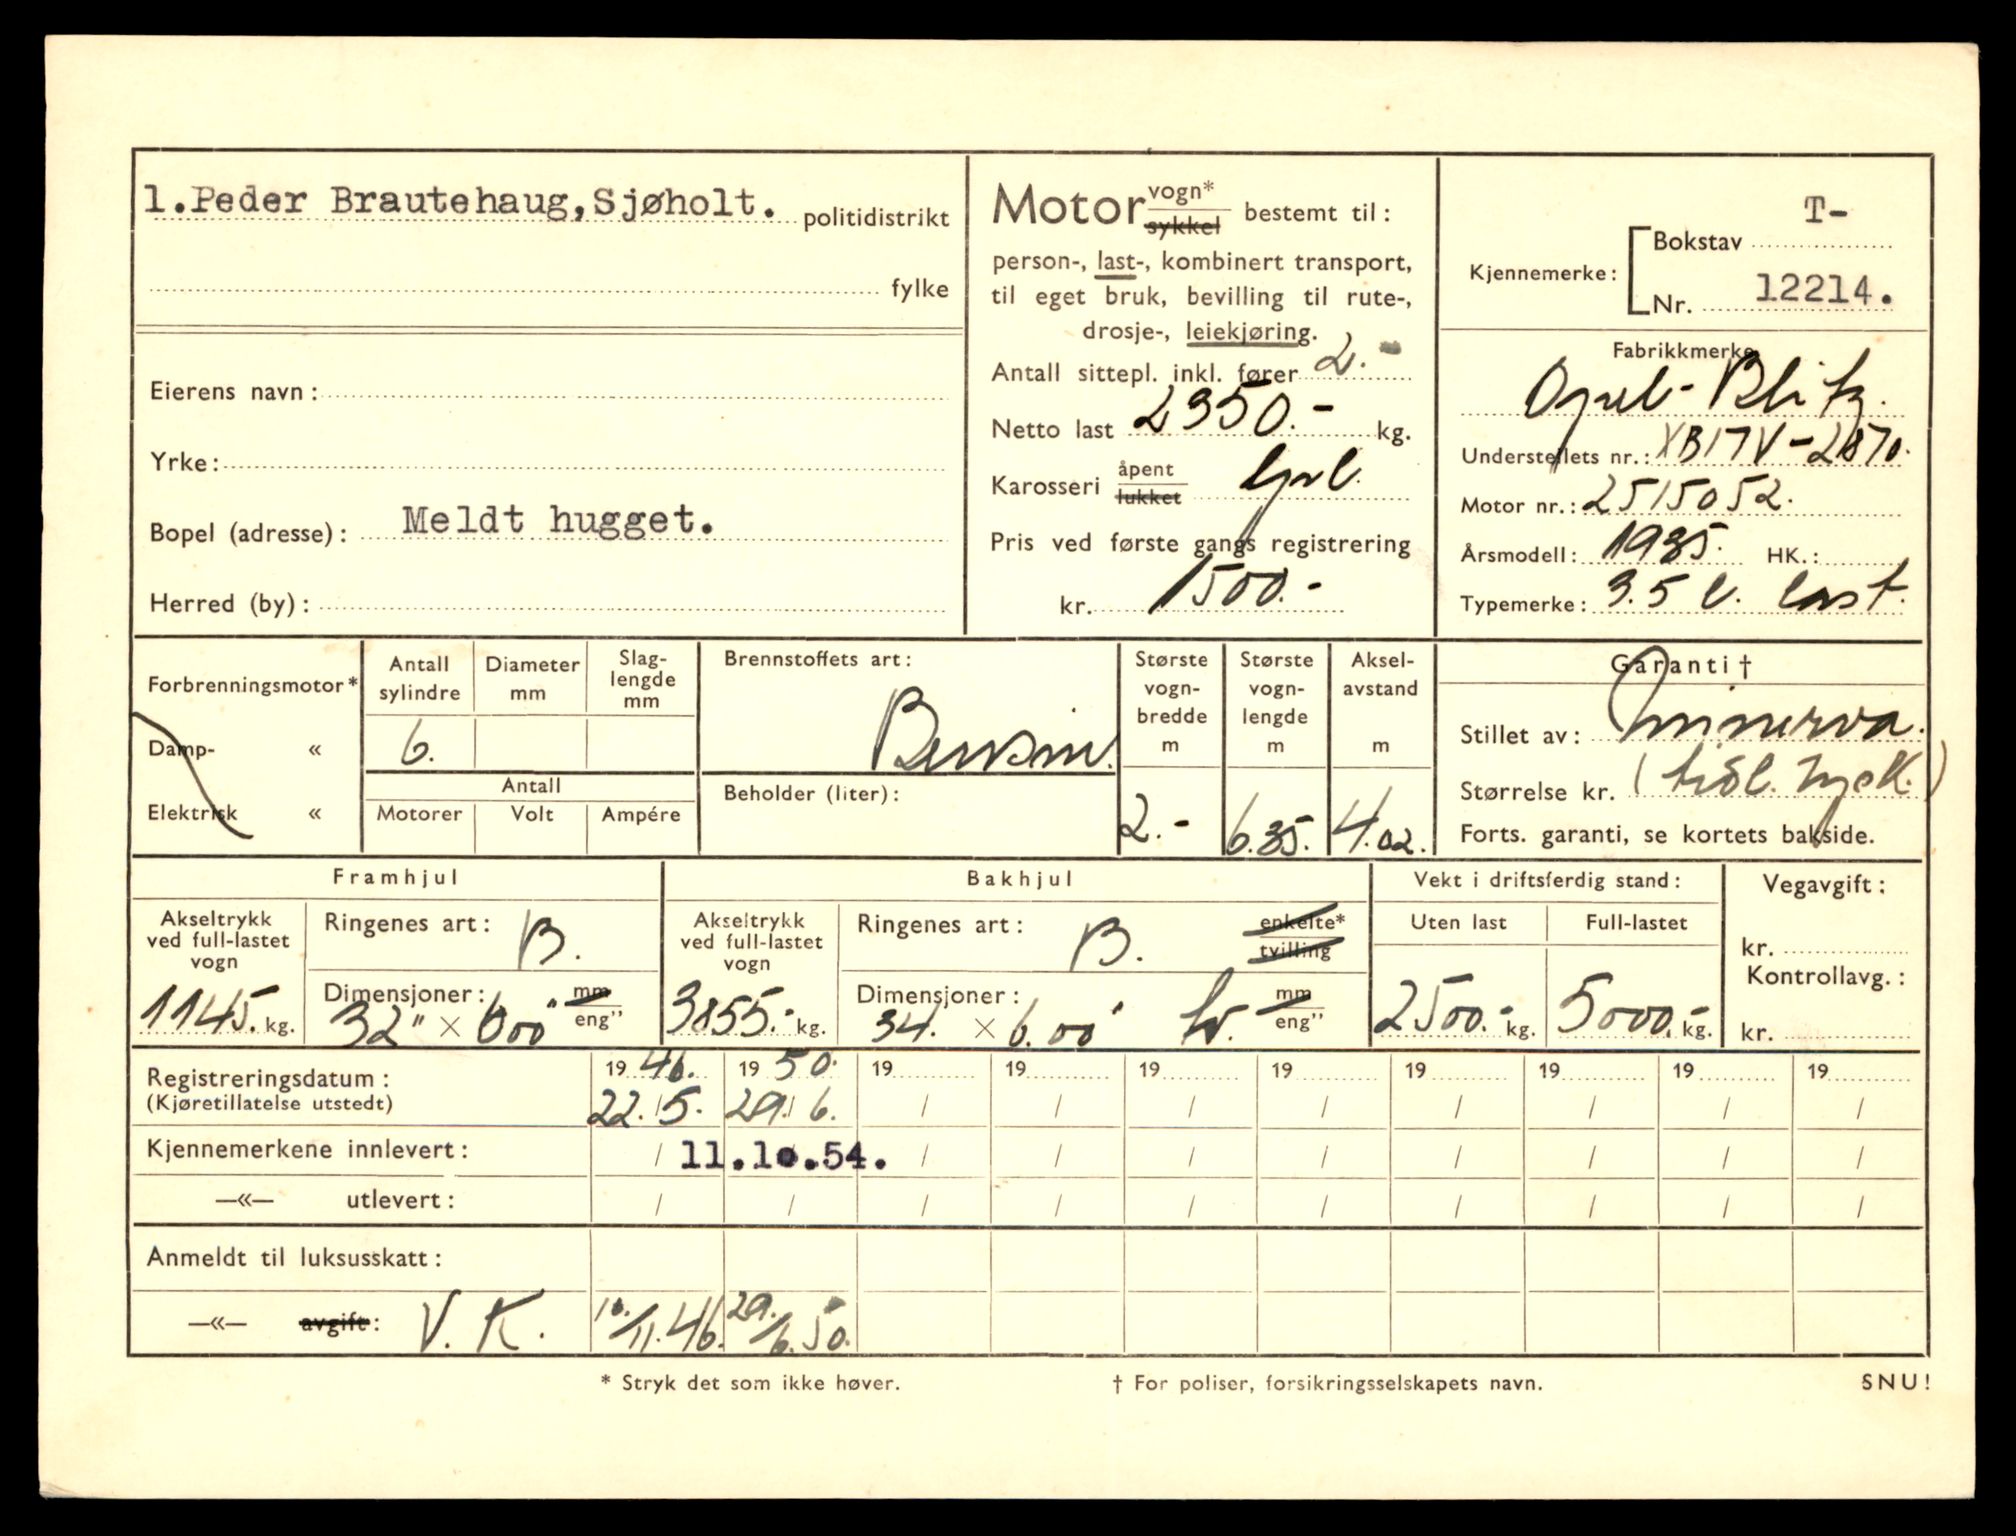 1.Peder Brautehaug,Sjøholt. politidistrikt
fylke
Eierens navn:
Yrke:
Bopel (adresse): Meldt hugget.
Herred (by):
Motor vogn* sykkel bestemt til:
person-, last-, kombinert transport,
til eget bruk, bevilling til rute-,
drosje-, leiekjøring.
Antall sittepl. inkl. fører 2.-
Netto last 2350.- kg.
Karosseri åpent lukket
Pris ved første gangs registrering
kr. 1500.-
T-
Kjennemerke: Bokstav
Nr. 12214.
Fabrikkmerke
Opel-Blitz.
Understellets nr.: XB17V-2870.
Motor nr.: 2515052.
Årsmodell: 1935. HK.:
Typemerke: 3.5 l. last.
Forbrenningsmotor*
Damp- «
Elektrisk «
Antall sylindre
Diameter mm
Slag-lengde mm
6.
Antall
Motorer Volt Ampére
Brennstoffets art:
Bensin.
Beholder (liter):
Største vogn-bredde m
2.-
Største vogn-lengde m
6.35.
Aksel-avstand m
4.02.
Garanti†
Stillet av: Minerva.
Størrelse kr.
Forts. garanti, se kortets bakside.
Framhjul
Akseltrykk ved full-lastet vogn
1145.- kg.
Ringenes art: B.
Dimensjoner: mm eng"
32" × 600"
Bakhjul
Akseltrykk ved full-lastet vogn
3855.- kg.
Ringenes art: B. enkelte* tvilling
Dimensjoner: mm eng"
34. × 6.00"
Vekt i driftsferdig stand:
Uten last Full-lastet
2500.- kg. 5000.- kg.
Vegavgift:
kr.
Kontrollavg.:
kr.
Registreringsdatum: 19 46. 19 50. 19 19 19 19 19 19 19 19
(Kjøretillatelse utstedt) 22./5. 29./6. / / / / / / / /
Kjennemerkene innlevert: / 11.10.54. / / / / / / / /
—«— utlevert: / / / / / / / / / /
Anmeldt til luksusskatt:
—«— avgift: V. K. 16./11.46. 29./6.50.
* Stryk det som ikke høver.
† For poliser, forsikringsselskapets navn.
SNU!